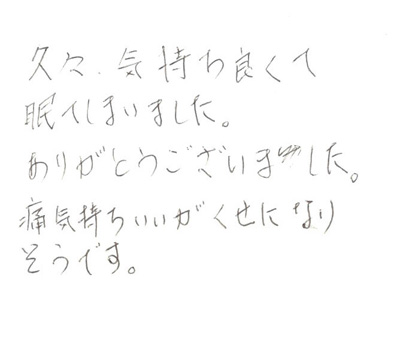 久々、気持ち良くて
眠てしまいました。
ありがとうございました。
痛気持ちいいがくせになり
そうです。